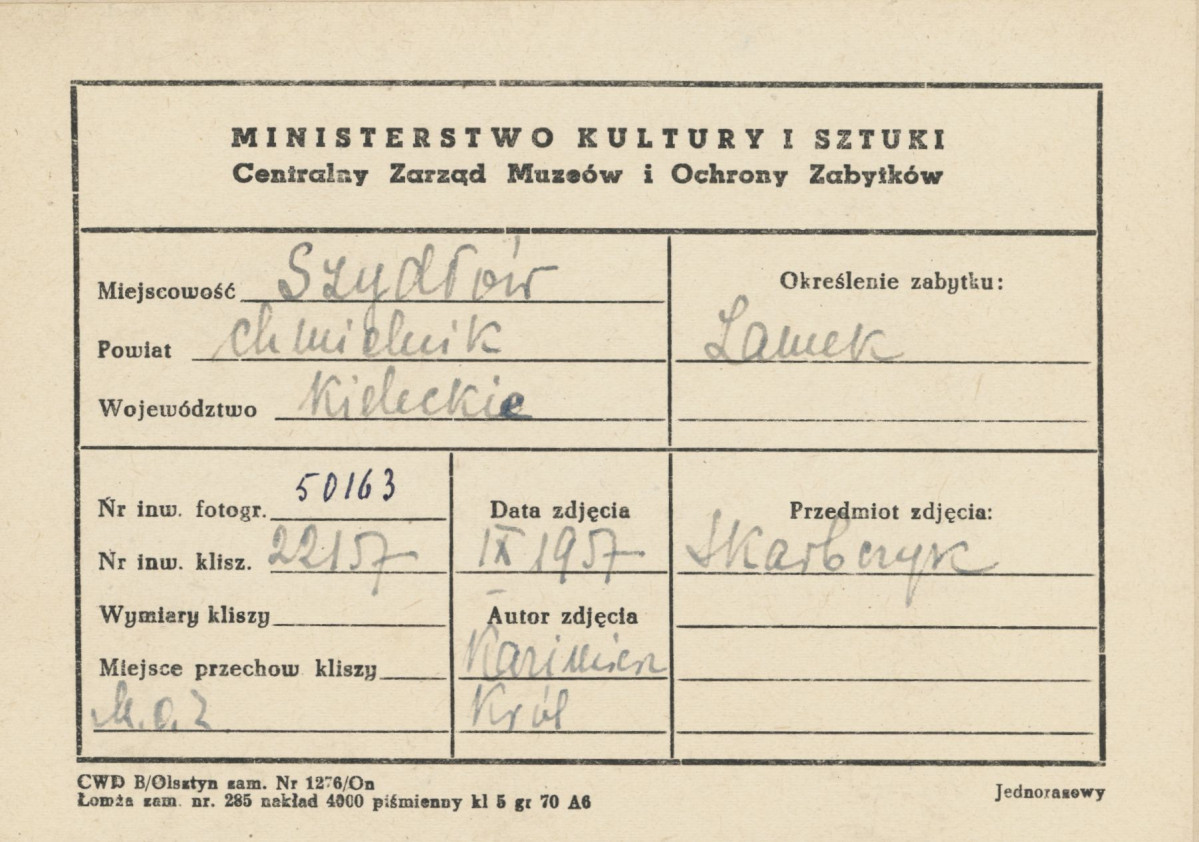 MINISTERSTWO KULTURY I SZTUKI
Centralny Zarząd Muzeów i Ochrony Zabytków
Miejscowość Szydłów
Powiat chmielnik
Województwo Kieleckie
Określenie zabytku:
Zamek
Nr inw. fotogr. 50163
Nr inw. klisz. 22157
Wymiary kliszy
Miejsce przechow kliszy
M.O.Z
Data zdjęcia
IX 1957
Autor zdjęcia
Kazimierz
Król
Przedmiot zdjęcia:
Skarbczyk
CWD B/Olsztyn zam. Nr 1276/On
Łomża zam. nr. 285 nakład 4000 piśmienny kl 5 gr 70 A6
Jednorazowy